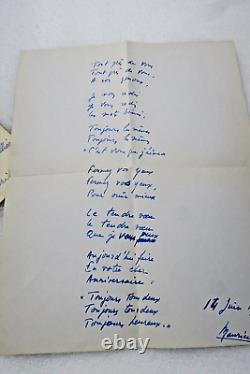 Tout près de vous
Tout près de vous,
A vos genoux.
Je vous redis
Je vous redis
Les mots bénis:
Toujours les mêmes
Toujours les mêmes
"C'est vous que j'aime
Fermez vos yeux
Fermez vos yeux,
Pour mieux
Le tendre vœu
Le tendre vœu
Que je vous
Aujourd'hui faire
En votre cher
Anniversaire:
"Toujours tous deux
Toujours tous deux
Toujours heureux."
14 Juin
Maurice
© worthpoint.com